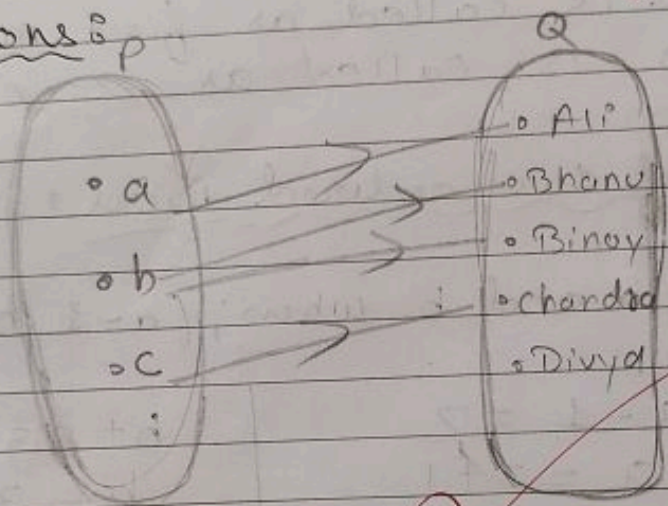 ons:
P
Q
a
b
c
:
Ali
Bhanu
Binoy
:
chandra
Divya